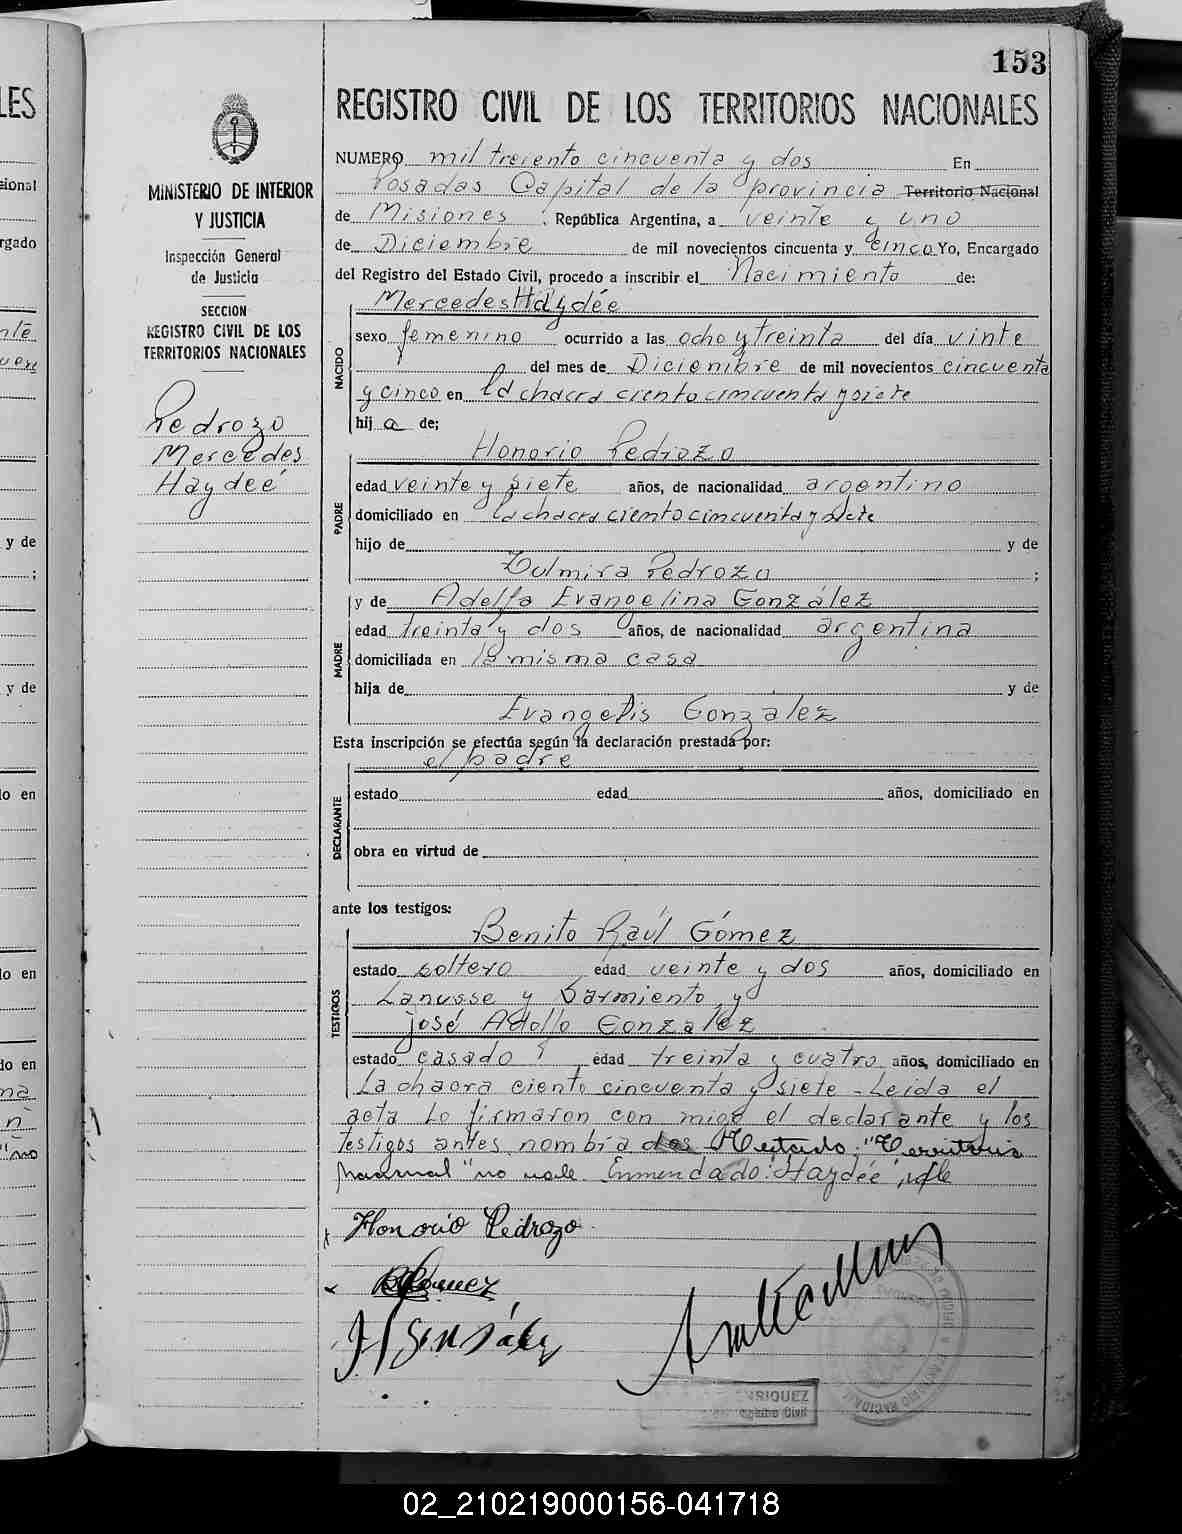 153
LES
REGISTRO CIVIL DE LOS TERRITORIOS NACIONALES
MINISTERIO DE INTERIOR
Y JUSTICIA
Inspección General
de Justicia
SECCION
REGISTRO CIVIL DE LOS
TERRITORIOS NACIONALES
Pedrozo
Mercedes
Haydeé
NUMERO mil treciento cincuenta y dos En
Posadas Capital de la provincia Territorio Nacional
de Misiones República Argentina, a veinte y uno
de Diciembre de mil novecientos cincuenta y cinco Yo, Encargado
del Registro del Estado Civil, procedo a inscribir el Nacimiento de:
Mercedes Haydée
NACIDO
sexo femenino ocurrido a las ocho y treinta del día vinte
del mes de Diciembre de mil novecientos cincuenta
y cinco en la chacra ciento cincuenta y siete
hij a de;
Honorio Pedrozo
PADRE
edad veinte y siete años, de nacionalidad argentino
domiciliado en la chacra ciento cincuenta y siete
hijo de y de
Tulmira Pedrozo ;
y de Adelfa Evangelina González
MADRE
edad treinta y dos años, de nacionalidad argentina
domiciliada en la misma casa
hija de y de
Evangelis González
Esta inscripción se efectúa según la declaración prestada por:
el padre
DECLARANTE
estado edad años, domiciliado en
obra en virtud de
ante los testigos:
Benito Raúl Gómez
TESTIGOS
estado soltero edad veinte y dos años, domiciliado en
Lanusse y Sarmiento y
José Adolfo González
estado casado edad treinta y cuatro años, domiciliado en
La chacra ciento cincuenta y siete - Leida el
acta Lo firmaron con migo el declarante y los
testigos antes nombrados Testado: "Territorio
nacional" no vale Enmendado: Haydée, vale
Honorio Pedrozo
RGómez
J A González
NRIQUEZ
Civil
02_210219000156-041718